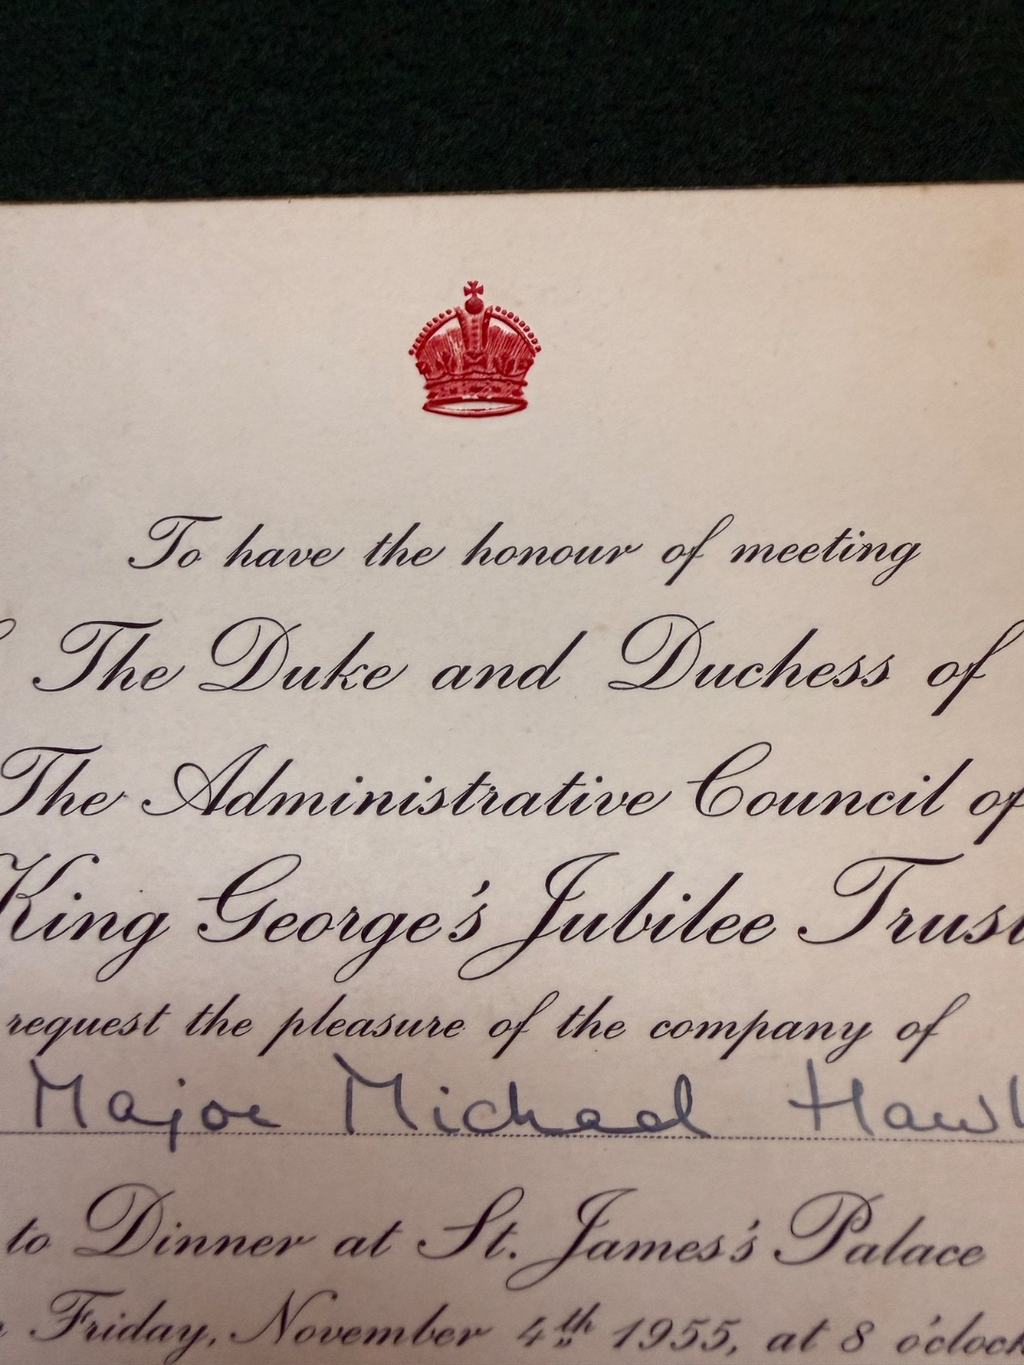 To have the honour of meeting
The Duke and Duchess of
The Administrative Council of
King George's Jubilee Trust
request the pleasure of the company of
Major Michael
to Dinner at St. James's Palace
Friday, November 4th 1955, at 8 o'clock